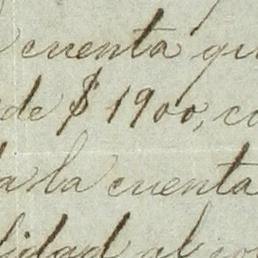 cuenta qu
de $1900, co
a la cuenta
lidad al co